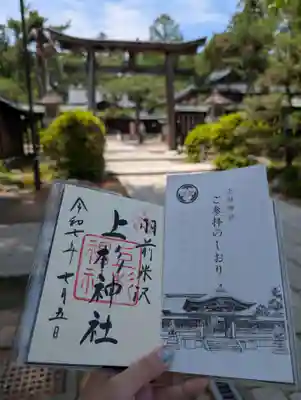 羽前米沢
上杉神社
令和七年七月五日
上杉神社
ご参拝のしおり